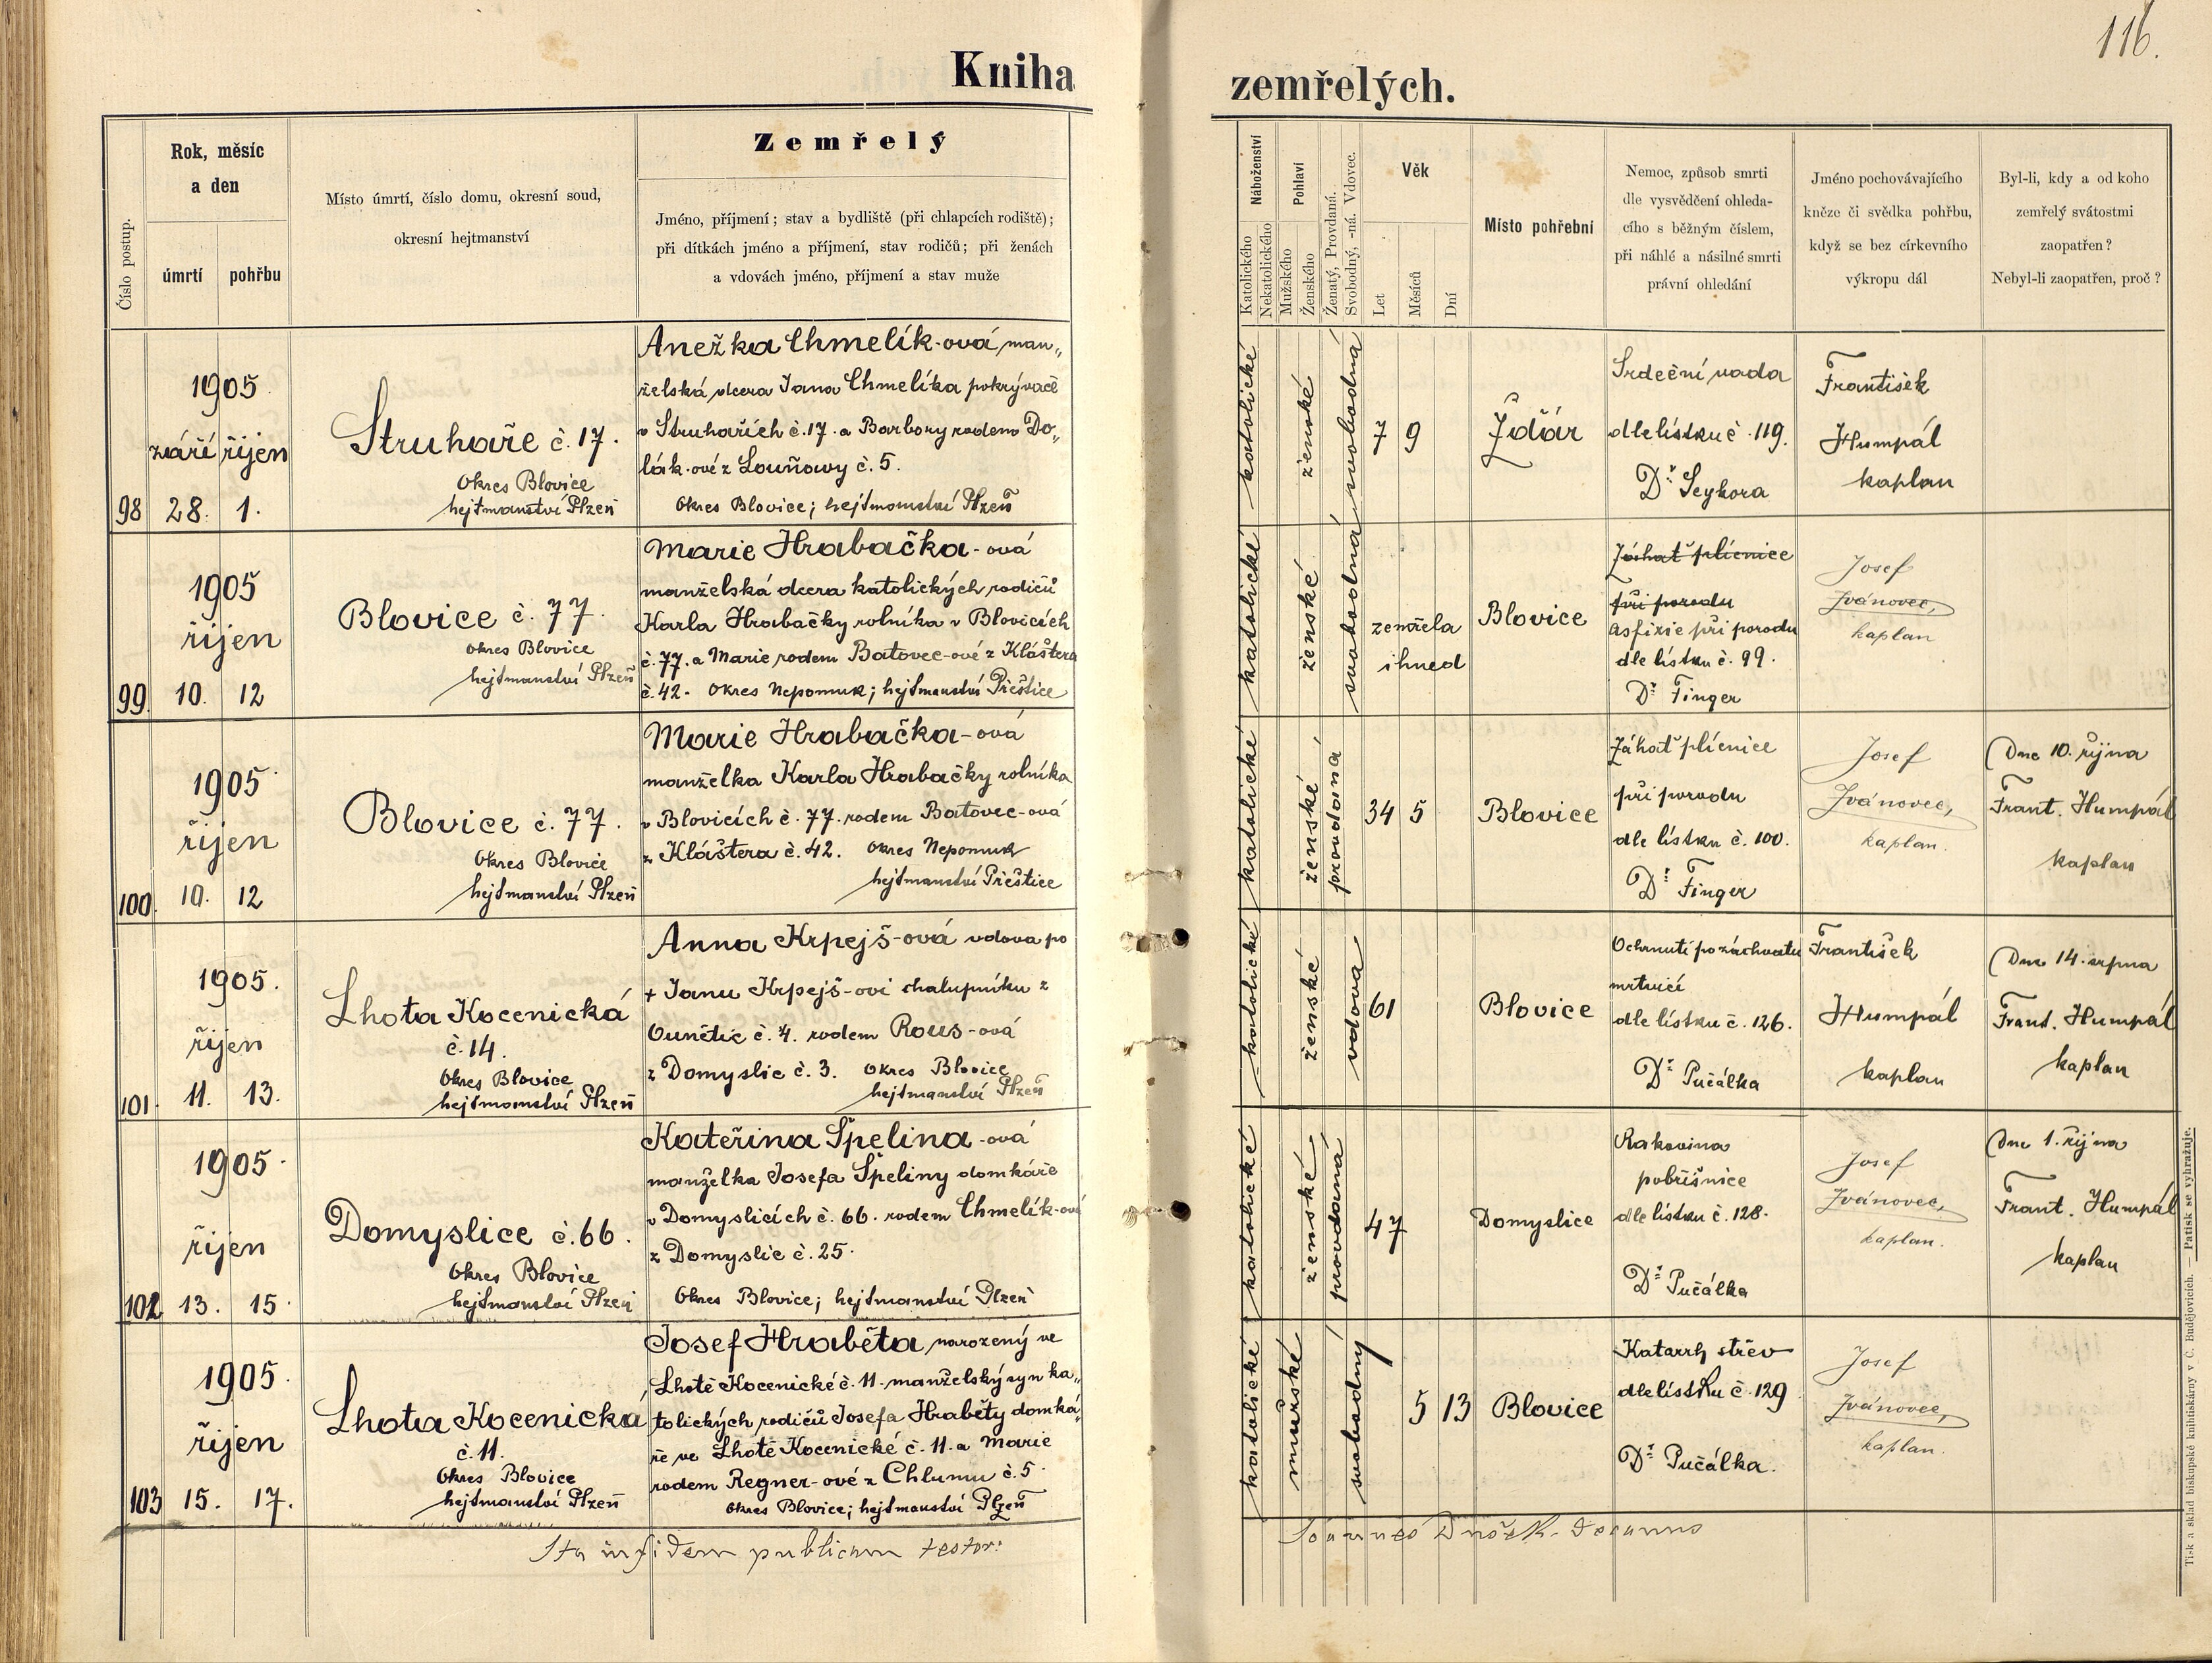 116.
Kniha zemřelých.
Číslo postup.
Rok, měsíc
a den
úmrtí
pohřbu
Místo úmrtí, číslo domu, okresní soud,
okresní hejtmanství
Zemřelý
Jméno, příjmení; stav a bydliště (při chlapcích rodiště);
při dítkách jméno a příjmení, stav rodičů; při ženách
a vdovách jméno, příjmení a stav muže
Náboženství
Katolického
Nekatolického
Pohlaví
Mužského
Ženského
Ženatý, Provdaná.
Svobodný, -ná. Vdovec.
Věk
Let
Měsíců
Dní
Místo pohřební
Nemoc, způsob smrti
dle vysvědčení ohleda-
cího s běžným číslem,
při náhlé a násilné smrti
právní ohledání
Jméno pochovávajícího
kněze či svědka pohřbu,
když se bez církevního
výkropu dál
Byl-li, kdy a od koho
zemřelý svátostmi
zaopatřen?
Nebyl-li zaopatřen, proč?
98
1905.
září říjen
28. 1.
Struhaře č. 17.
Okres Blovice
hejtmanství Plzeň
Anežka Chmelík-ová man„
želská dcera Jana Chmelíka pokrývače
v Struhařích č. 17. a Barbory rodem Do„
lák-ové z Louňowy č. 5.
Okres Blovice; hejtmanství Plzeň
katolické
ženské
svobodná
7 9
Ždár
Srdeční vada
dle lístku č. 119.
Dr. Seykora
František
Humpál
kaplan
99.
1905
říjen
10. 12
Blovice č. 77.
Okres Blovice
hejtmanství Plzeň
Marie Hrabačka-ová
manželská dcera katolických rodičů
Karla Hrabačky rolníka v Blovicích
č. 77. a Marie rodem Batovec-ové z Kláštera
č. 42. Okres Nepomuk; hejtmanství Přeštice
katolické
ženské
svobodná
zemřela
ihned
Blovice
Záhať plícnice
při porodu
Asfixie při porodu
dle lístku č. 99.
Dr. Finger
Josef
Jvánovec,
kaplan
100.
1905
říjen
10. 12
Blovice č. 77.
Okres Blovice
hejtmanství Plzeň
Marie Hrabačka-ová
manželka Karla Hrabačky rolníka
v Blovicích č. 77. rodem Batovec-ová
z Kláštera č. 42. Okres Nepomuk
hejtmanství Přeštice
katolické
ženské
provdaná
34 5
Blovice
Záhať plícnice
při porodu
dle lístku č. 100.
Dr. Finger
Josef
Jvánovec,
kaplan.
Dne 10. října
Frant. Humpál
kaplan
101.
1905.
říjen
11. 13.
Lhota Kocenická
č. 14.
Okres Blovice
hejtmanství Plzeň
Anna Krpejš-ová vdova po
+ Janu Krpejš-ovi chalupníku z
Ounětic č. 4. rodem Rous-ová
z Domyslic č. 3. Okres Blovice
hejtmanství Plzeň
katolické
ženské
vdova
61
Blovice
Ochrnutí po záchvatu
mrtvicí
dle lístku č. 126.
Dr. Pučálka
František
Humpál
kaplan
Dne 14. srpna
Frant. Humpál
kaplan
102
1905.
říjen
13. 15.
Domyslice č. 66.
Okres Blovice
hejtmanství Plzeň
Kateřina Špelina-ová
manželka Josefa Špeliny domkáře
v Domyslicích č. 66. rodem Chmelík-ová
z Domyslic č. 25.
Okres Blovice; hejtmanství Plzeň
katolické
ženské
provdaná
47
Domyslice
Rakovina
pobřišnice
dle lístku č. 128.
Dr. Pučálka
Josef
Jvánovec,
kaplan.
Dne 1. října
Frant. Humpál
kaplan
103
1905.
říjen
15. 17.
Lhota Kocenická
č. 11.
Okres Blovice
hejtmanství Plzeň
Josef Hraběta, narozený ve
Lhotě Kocenické č. 11. manželský syn ka„
tolických rodičů Josefa Hraběty domká„
ře ve Lhotě Kocenické č. 11. a Marie
rodem Regner-ové z Chlumu č. 5.
Okres Blovice; hejtmanství Plzeň
katolické
mužské
svobodný
5 13
Blovice
Katarrh střev
dle lístku č. 129.
Dr. Pučálka.
Josef
Jvánovec,
kaplan.
Ita in fidem publicam testor:
Tisk a sklad biskupské knihtiskárny v Č. Budějovicích. — Patisk se vyhražuje.